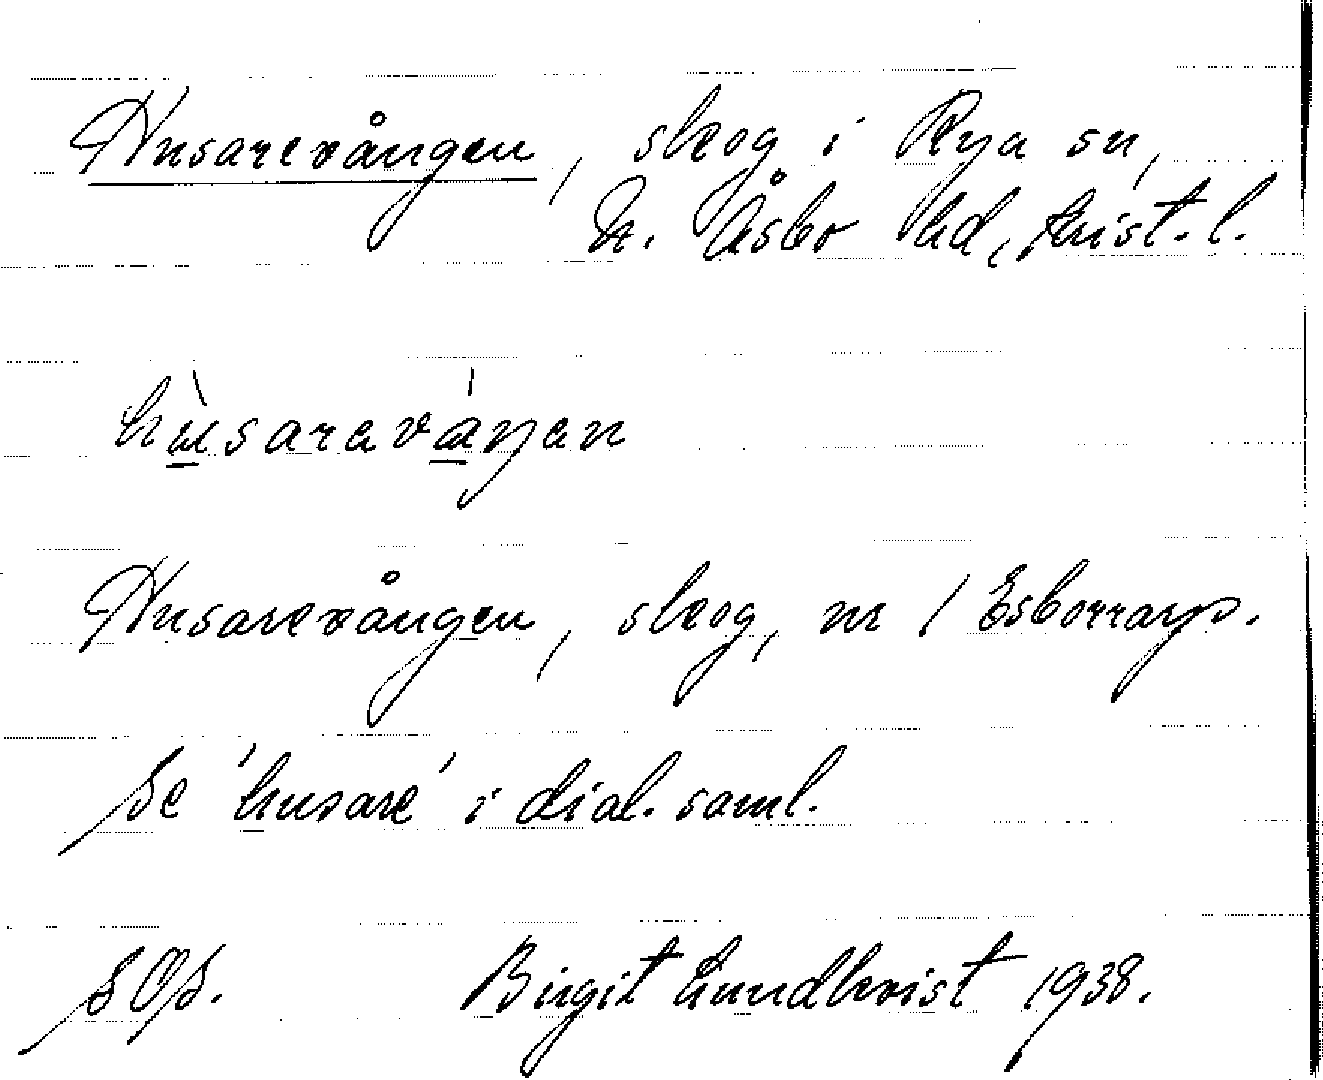 Husarevången, skog i Rya sn,
N. Åsbo hd, Krist. l.
hùsaraváŋan
Husarevången, skog, nr 1 Esborrarp.
Se 'husare' i dial. saml.
SOS. Birgit Lundkvist 1938.